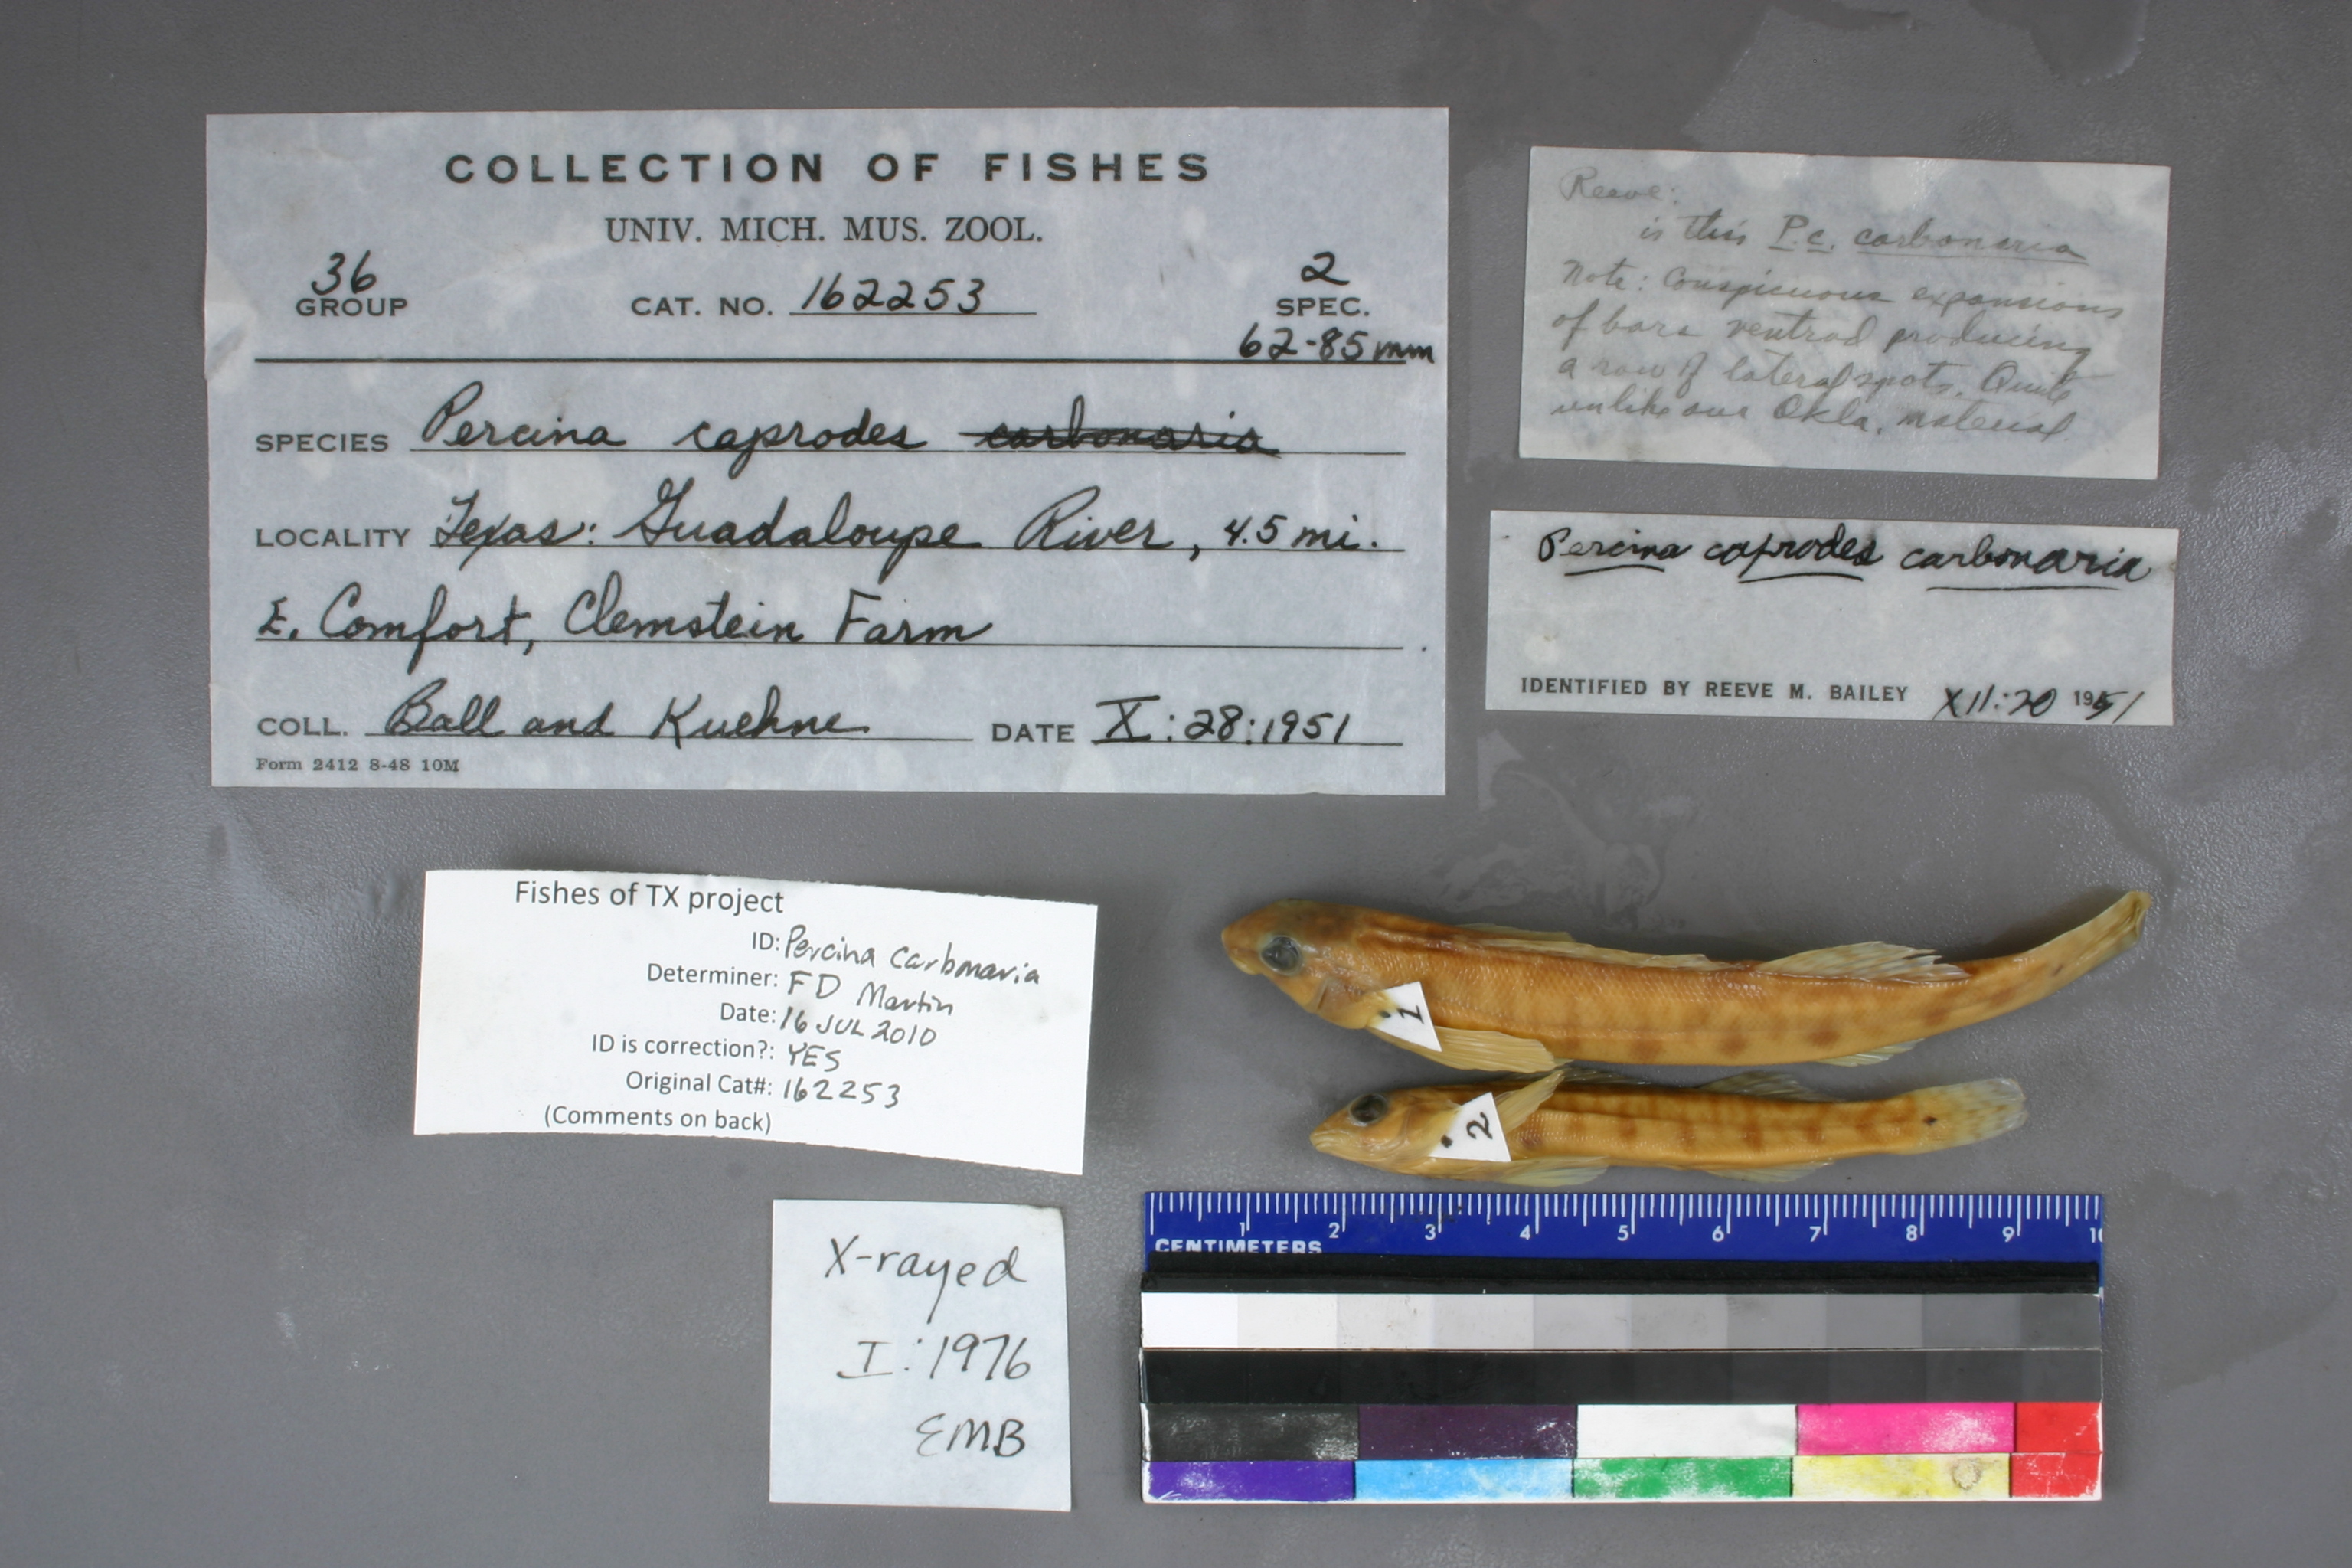 COLLECTION OF FISHES
UNIV. MICH. MUS. ZOOL.
36
GROUP
CAT. NO. 162253
2
SPEC.
62-85mm
SPECIES Percina caprodes carbonaria
LOCALITY Texas: Guadaloupe River, 4.5 mi.
E. Comfort, Clemstein Farm
COLL. Ball and Kuehne DATE X:28:1951
Form 2412 8-48 10M
Reeve:
is this P.c. carbonaria
Note: Conspicuous expansions
of bars ventrad producing
a row of lateral spots. Quite
unlike our Okla. material
Percina caprodes carbonaria
IDENTIFIED BY REEVE M. BAILEY XII:20 1951
Fishes of TX project
ID: Percina carbonaria
Determiner: FD Martin
Date: 16 JUL 2010
ID is correction?: YES
Original Cat#: 162253
(Comments on back)
1
2
X-rayed
I:1976
EMB
1 2 3 4 5 6 7 8 9 10
CENTIMETERS